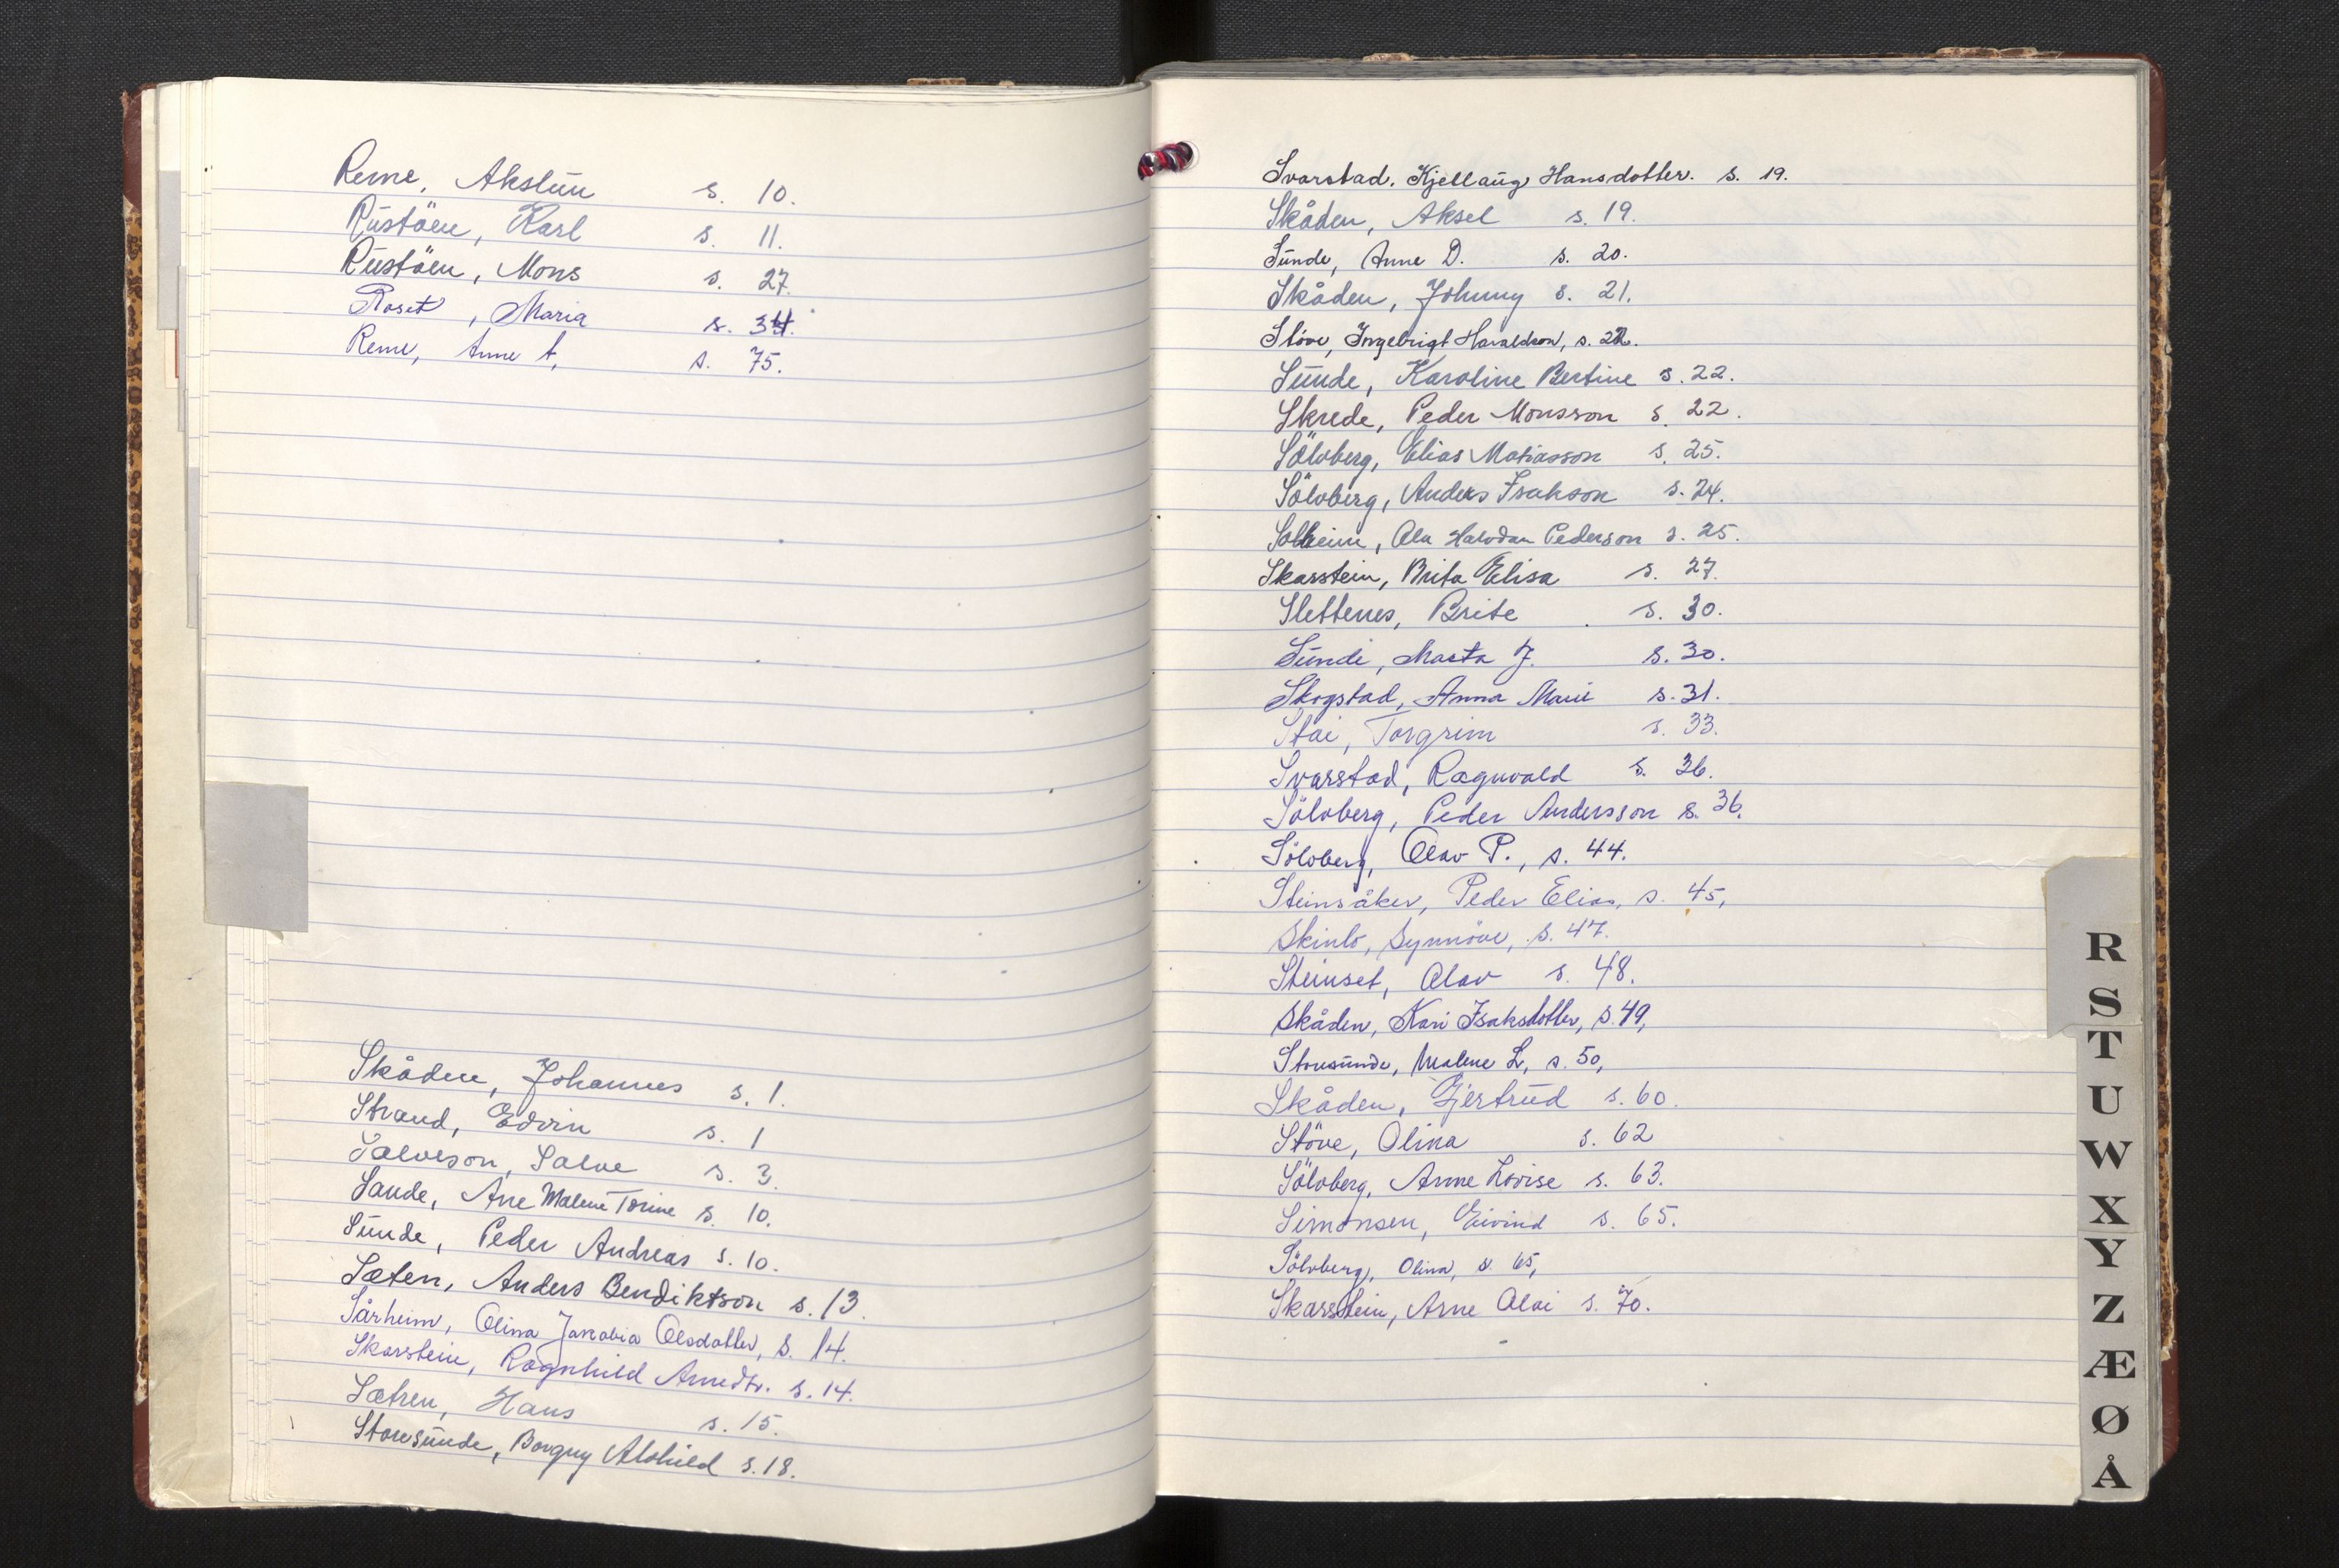 Reme, Akslun s. 10.
Rustöen, Karl s. 11.
Rustöen, Mons s. 27.
Roset, Maria s. 34.
Reme, Anne A, s. 75.
Skåden, Johannes s. 1.
Strand, Edvin s. 1
Salveson, Salve s. 3.
Sande, Ane Malene Torine s. 10.
Sunde, Peder Andreas s. 10.
Sæten, Anders Bendiktson s. 13.
Sårheim, Olina Jakobia Olsdotter, s. 14.
Skarstein, Ragnhild Arnedtr. s. 14.
Sætren, Hans s. 15.
Storesunde, Borgny Alshild s. 18.
Svarstad, Kjellaug Hansdotter. s. 19.
Skåden, Aksel s. 19.
Sunde, Anne D. s. 20.
Skåden, Johnny s. 21.
Støve, Ingebrigt Haraldson, s. 22.
Sunde, Karoline Bertine s. 22.
Skrede, Peder Monsson s. 22.
Sölvberg, Elias Matiasson s. 25.
Sölvberg, Anders Isakson s. 24.
Solheim, Ola Halvdan Pederson s. 25.
Skarstein, Brita Elisa s. 27.
Slettenes, Brite s. 30.
Sunde, Marta J. s. 30.
Skogstad, Anna Marie s. 31.
Stai, Torgrim s. 33.
Svarstad, Ragnvald s. 36.
Sölvberg, Peder Andersson s. 36.
Sölvberg, Olav P., s. 44.
Steinsåker, Peder Elias, s. 45,
Skinlo, Synnöve, s. 47.
Steinset, Olav s. 48.
Skåden, Kari Isaksdotter, s. 49,
Storesunde, Malene L, s. 50,
Skåden, Gjertrud s. 60.
Støve, Olina s. 62
Sölvberg, Anne Lovise s. 63.
Simonsen, Eivind s. 65.
Sölvberg, Olina, s. 65,
Skarstein, Arne Olai s. 70.
R
S
T
U
W
X
Y
Z
Æ
Ø
Å